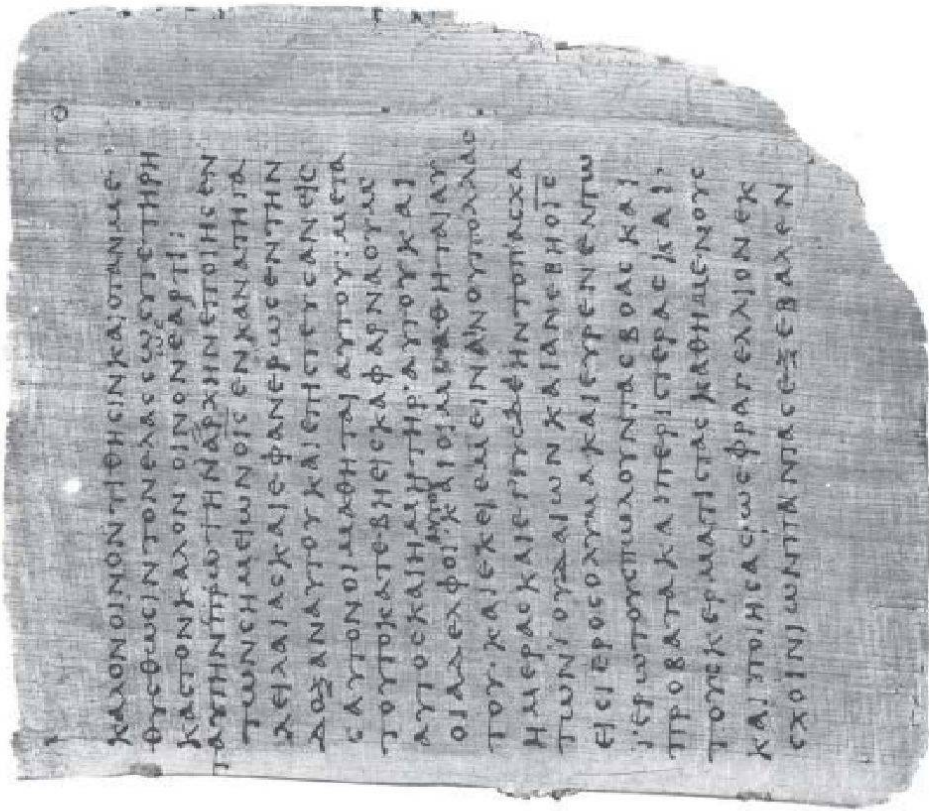 ΚΑΛΟΝΟΙΝΟΝΤΙΘΗϹΙΝΚΑΙΟΤΑΝΜΕ
ΘΥϹΘΩϹΙΝΤΟΝΕΛΑϹϹΩϹΥΤΕΤΗΡΗ
ΚΑϹΤΟΝΚΑΛΟΝΟΙΝΟΝΕΑΡΤΙ:
ΤΑΥΤΗΝΠΡΩΤΗΝΑΡΧΗΝΕΠΟΙΗϹΕΝ
ΤΩΝϹΗΜΕΙΩΝΟΙϹΕΝΚΑΝΑΤΗΓΑ
ΛΕΙΛΑΙΑϹΚΑΙΕΦΑΝΕΡΩϹΕΝΤΗΝ
ΔΟΞΑΝΑΥΤΟΥΚΑΙΕΠΙϹΤΕΥϹΑΝΕΙϹ
ΑΥΤΟΝΟΙΜΑΘΗΤΑΙΑΥΤΟΥ:ΜΕΤΑ
ΤΟΥΤΟΚΑΤΕΒΗΕΙϹΚΑΦΑΡΝΑΟΥΜ
ΑΥΤΟϹΚΑΙΗΜΗΤΗΡ·ΑΥΤΟΥΚΑΙ
ΟΙΑΔΕΛΦΟΙΚΑΙΟΙΜΑΘΗΤΑΙΑΥ
ΤΟΥ·ΚΑΙΕΚΕΙΕΜΕΙΝΑΝΟΥΠΟΛΛΑϹ
ΗΜΕΡΑϹΚΑΙΕΓΓΥϹΔΕΗΝΤΟΠΑϹΧΑ
ΤΩΝΪΟΥΔΑΙΩΝΚΑΙΑΝΕΒΗΟΙ̅Ϲ̅
ΕΙϹΙΕΡΟϹΟΛΥΜΑΚΑΙΕΥΡΕΝΕΝΤΩ
ΪΕΡΩΤΟΥϹΠΩΛΟΥΝΤΑϹΒΟΑϹΚΑΙ
ΠΡΟΒΑΤΑΚΑΙΠΕΡΙϹΤΕΡΑϹΚΑΙ
ΤΟΥϹΚΕΡΜΑΤΙϹΤΑϹΚΑΘΗΜΕΝΟΥϹ
ΚΑΙΠΟΙΗϹΑϹΩϹΦΡΑΓΕΛΛΙΟΝΕΚ
ϹΧΟΙΝΙΩΝΠΑΝΤΑϹΕΞΕΒΑΛΕΝ